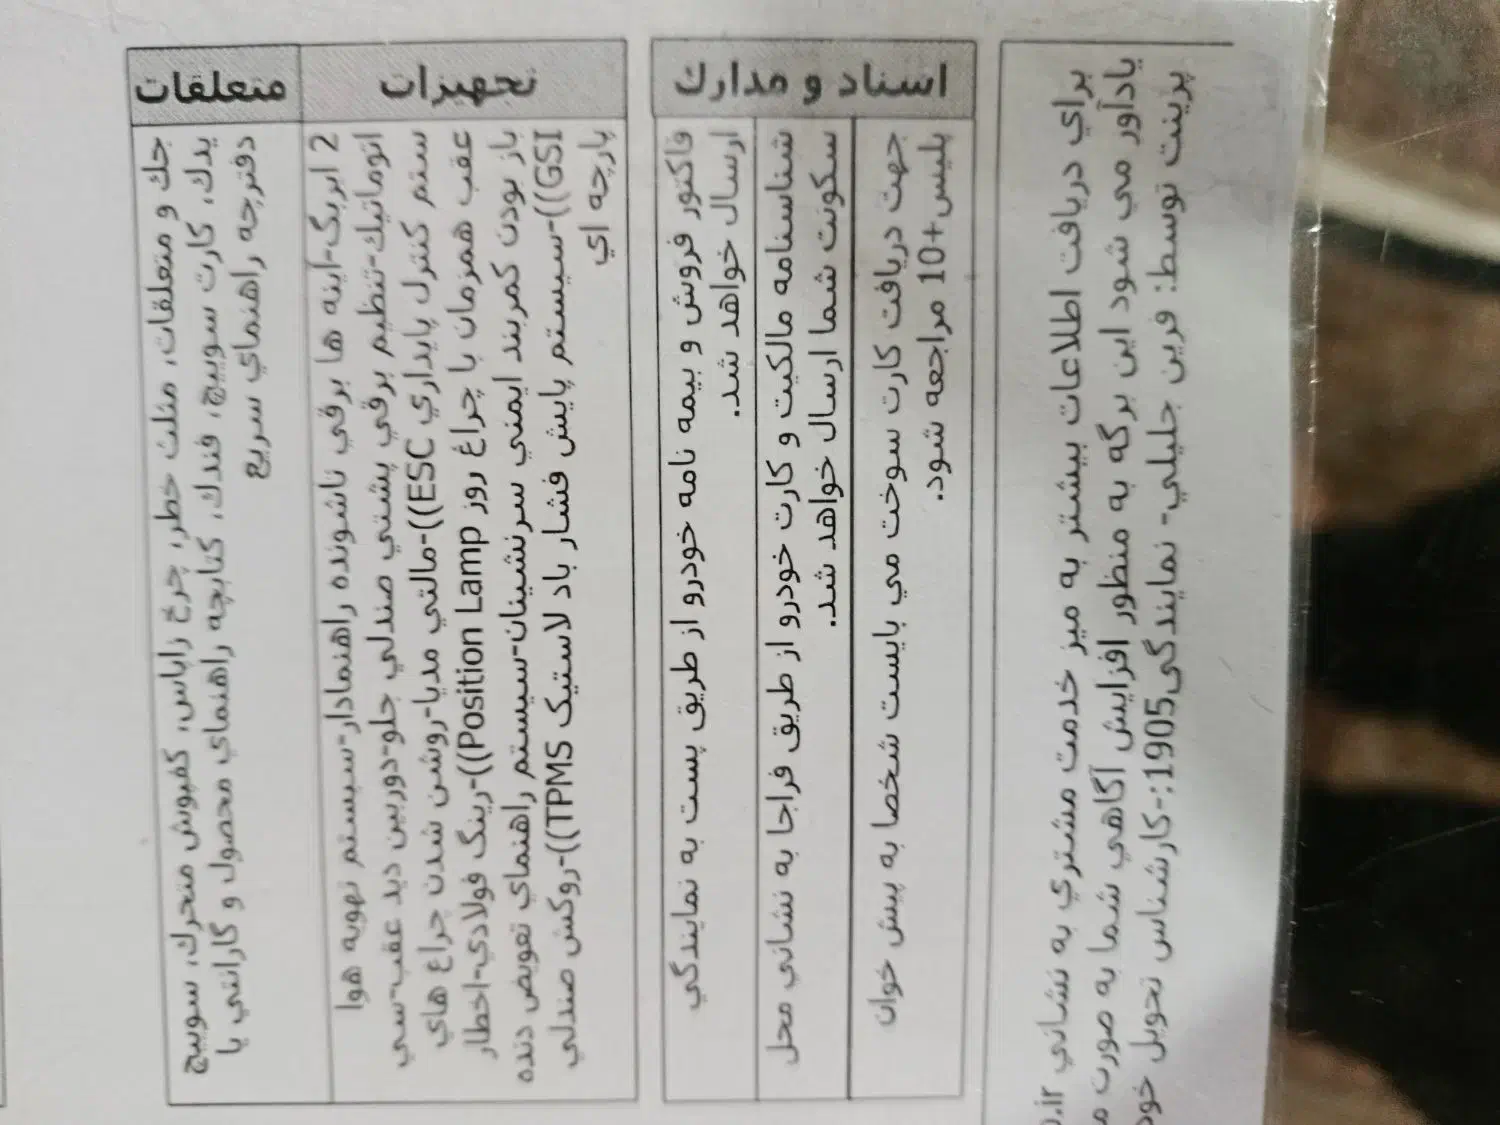 متعلقات
جك و متعلقات، مثلث خطر، چرخ زاپاس، كفپوش متحرك، سوييچ
يدك، كارت سوييچ، فندك، كتابچه راهنماي محصول و گارانتي يا
دفترچه راهنماي سريع
تجهيزات
2 ايربگ-آينه ها برقي تاشونده راهنمادار-سيستم تهويه هوا
اتوماتيك-تنظيم برقي پشتي صندلي جلو-دوربين ديد عقب-سي
ستم كنترل پايداري ESC))-مالتي مديا-روشن شدن چراغ هاي
عقب همزمان با چراغ روز Position Lamp))-رينگ فولادي-اخطار
باز بودن كمربند ايمني سرنشينان-سيستم راهنماي تعويض دنده
GSI))-سيستم پايش فشار باد لاستيک TPMS))-روكش صندلي
پارچه اي
اسناد و مدارك
فاكتور فروش و بيمه نامه خودرو از طريق پست به نمايندگي
ارسال خواهد شد.
شناسنامه مالكيت و كارت خودرو از طريق فراجا به نشاني محل
سكونت شما ارسال خواهد شد.
جهت دريافت كارت سوخت مي بايست شخصا به پيش خوان
پليس+10 مراجعه شود.
براي دريافت اطلاعات بيشتر به ميز خدمت مشتري به نشاني
يادآور مي شود اين برگه به منظور افزايش آگاهي شما به صورت
پرينت توسط: فرين جليلي- نمايندگی1905:-كارشناس تحويل